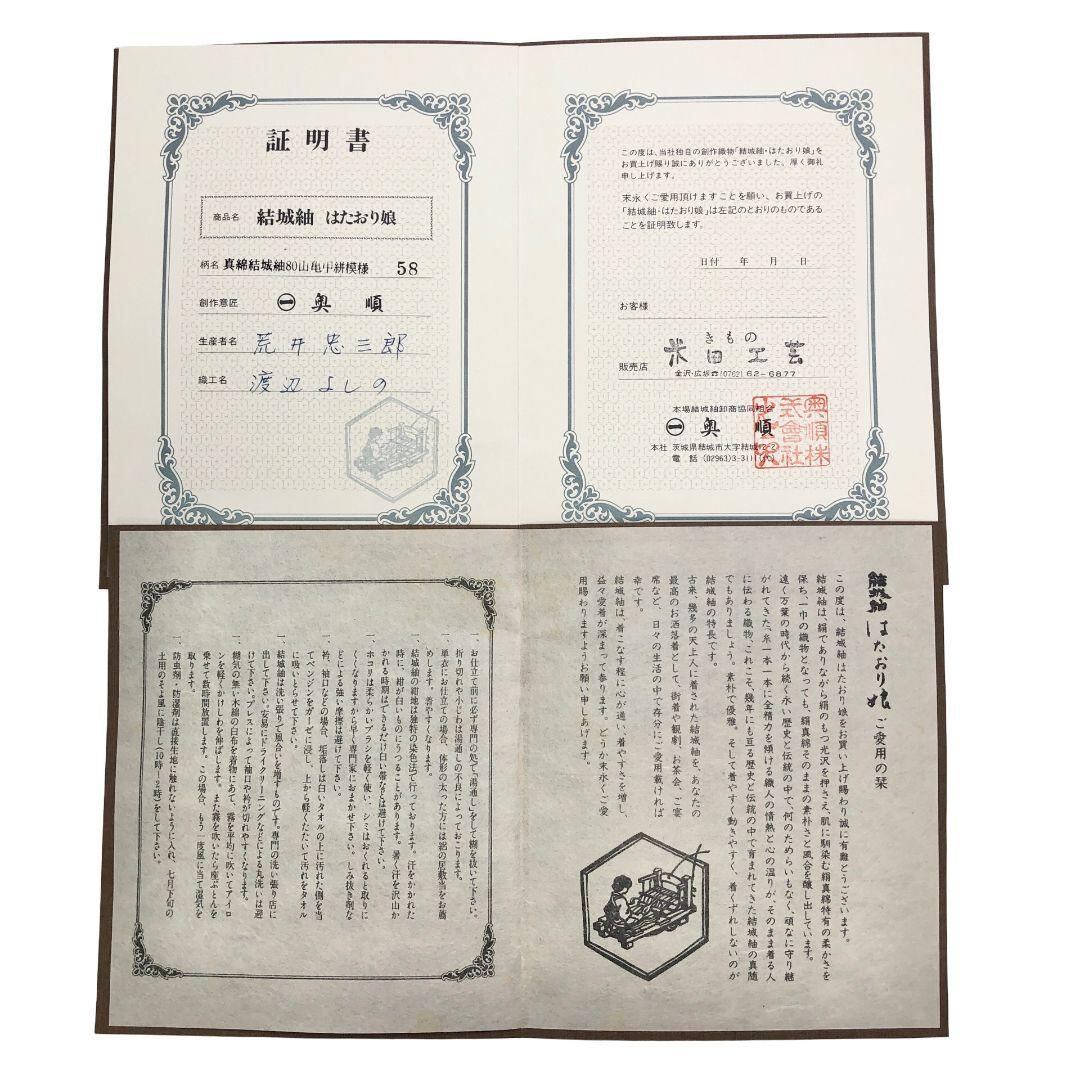 証明書
商品名 結城紬 はたおり娘
柄名 真綿結城紬80山亀甲絣模様 58
創作意匠 ㊀ 奥順
生産者名 荒井忠三郎
織工名 渡辺よしの
この度は、当社独自の創作織物「結城紬・はたおり娘」を
お買上げ賜り誠にありがとうございました。厚く御礼
申し上げます。
末永くご愛用頂けますことを願い、お買上げの
「結城紬・はたおり娘」は左記のとおりのものである
ことを証明致します。
日付 年 月 日
お客様
きもの
販売店 米田工芸
金沢・広坂☎(0762)62-6877
本場結城紬卸商協同組合
㊀ 奥順
本社 茨城県結城市大字結城12-2
電話 (02963)3-3111(代)
奥順株
式會社
結城紬 はたおり娘 ご愛用の栞
この度は、結城紬はたおり娘をお買い上げ賜わり誠に有難とうございます。
結城紬は、絹でありながら絹のもつ光沢を押さえ、肌に馴染む絹真綿特有の柔かさを
保ち、一巾の織物となっても、絹真綿そのままの素朴さと風合を醸し出しています。
遠く万葉の時代から続く永い歴史と伝統の中で、何のためらいもなく、頑なに守り継
がれてきた、糸一本一本に全精力を傾ける職人の情熱と心の温りが、そのまま着る人
に伝わる織物、これこそ、幾年にも亘る歴史と伝統の中で育まれてきた結城紬の真髄
でもありましょう。素朴で優雅。そして着やすく動きやすく、着くずれしないのが
結城紬の特長です。
古来、幾多の天上人に着された結城紬を、あなたの
最高のお洒落着として、街着や観劇、お茶会、ご宴
席など、日々の生活の中で存分にご愛用戴ければ
幸です。
結城紬は、着こなす程に心が通い、着やすさを増し、
益々愛着が深まって参ります。どうか末永くご愛
用賜わりますようお願い申しあげます。
一、お仕立て前に必ず専門の処で「湯通し」をして糊を抜いて下さい。
折り切れや小じわは湯通しの不良によっておこります。
一、単衣にお仕立ての場合、体形の太った方には絽の居敷当をお薦
めします。着やすくなります。
一、結城紬の紺地は独特の染色法で行っております。汗をかかれた
時に、紺が白いものにうつることがあります。暑く汗を沢山か
かれる時期はできるだけ白い帯などは避けて下さい。
一、ホコリは柔らかいブラシを軽く使い、シミはおくれると取りに
くくなりますから早く専門家におまかせ下さい。しみ抜き剤な
どによる強い摩擦は避けて下さい。
一、衿、袖口などの場合、垢落しは白いタオルの上に汚れた側を当
てベンジンをガーゼに浸し、上から軽くたたいて汚れをタオル
に吸いとらせて下さい。
一、結城紬は洗い張りで風合いを増すものです。専門の洗い張り店に
出して下さい。安易にドライクリーニングなどによる丸洗いは避
けて下さい。プレスによって袖口や衿が切れやすくなります。
一、糊気の無い木綿の白布を着物にあて、霧を平均に吹いてアイロ
ンを軽くかけしわを伸ばします。また霧を吹いたら座ぶとんを
乗せて数時間放置します。この場合、もう一度風に当て湿気を
取ります。
一、防虫剤・防湿剤は直接生地に触れないように入れ、七月下旬の
土用のそよ風に陰干し(10時〜2時)をして下さい。